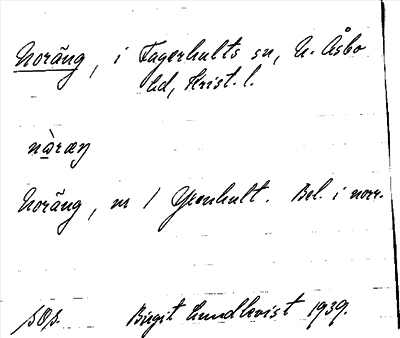 Noräng, i Fagerhults sn, N. Åsbo
hd, Krist. l.
nàraŋ
Noräng, m / Grönhult. Bel. i norr.
Birgit Lundkvist 1939.